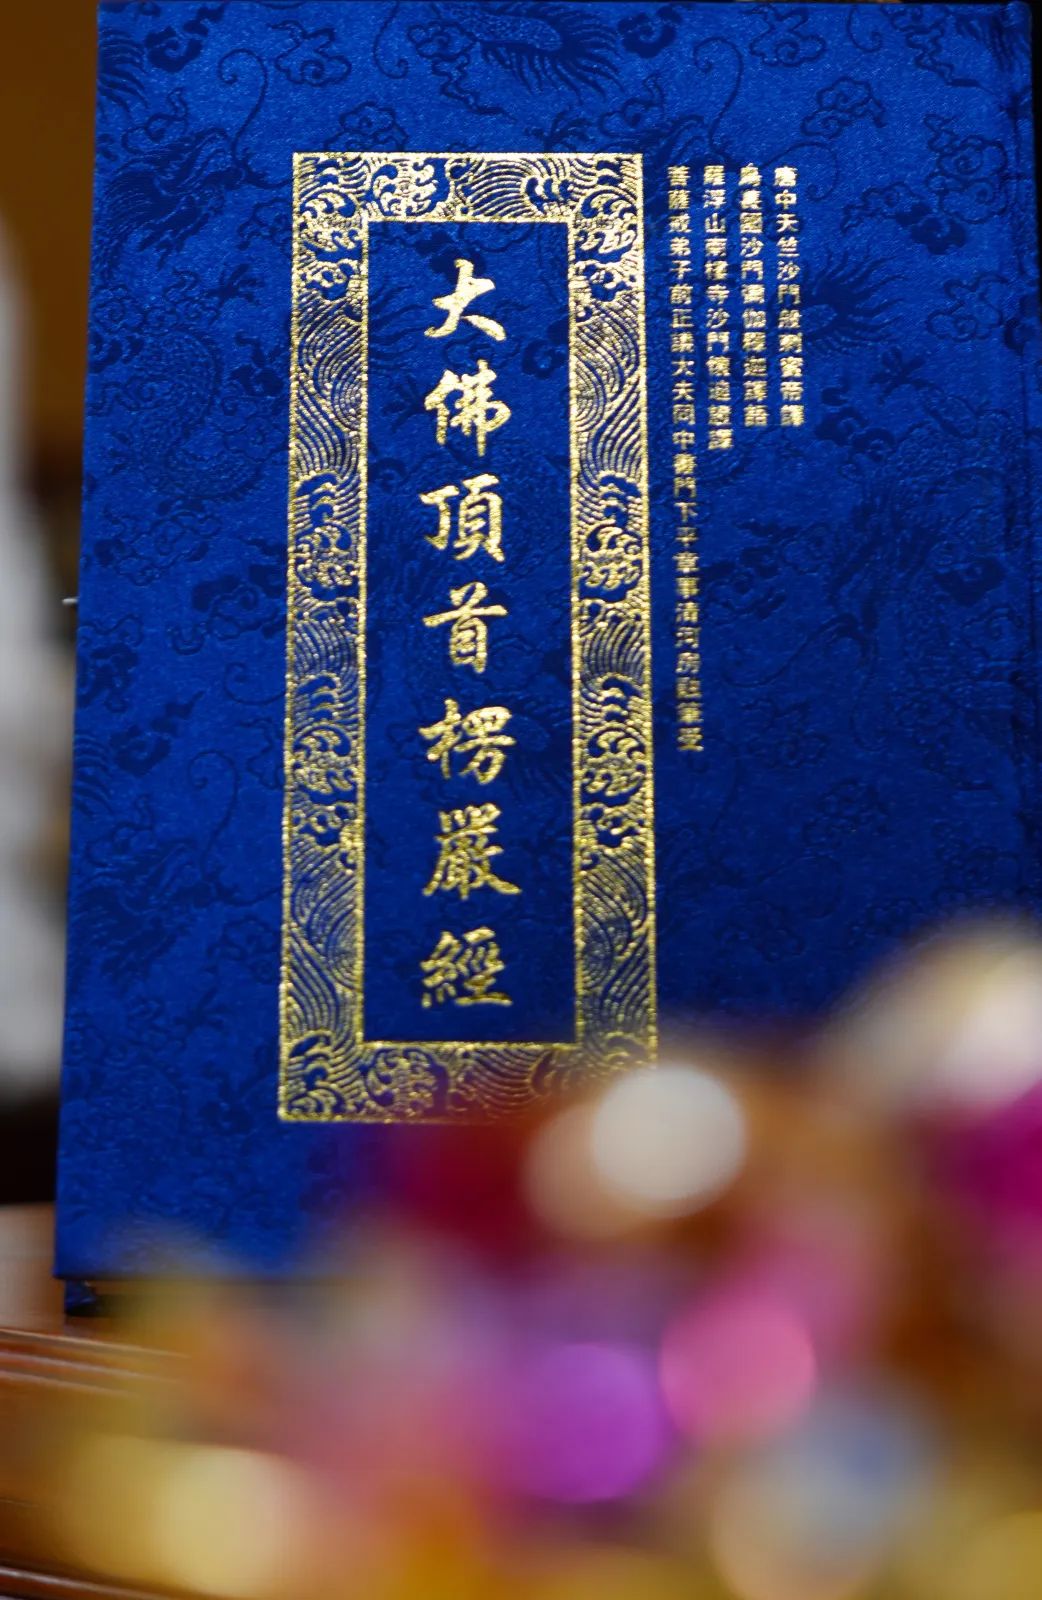 大佛頂首楞嚴經
唐中天竺沙門般剌蜜帝譯
烏萇國沙門彌伽釋迦譯語
羅浮山南樓寺沙門懷迪證譯
菩薩戒弟子前正議大夫同中書門下平章事清河房融筆受